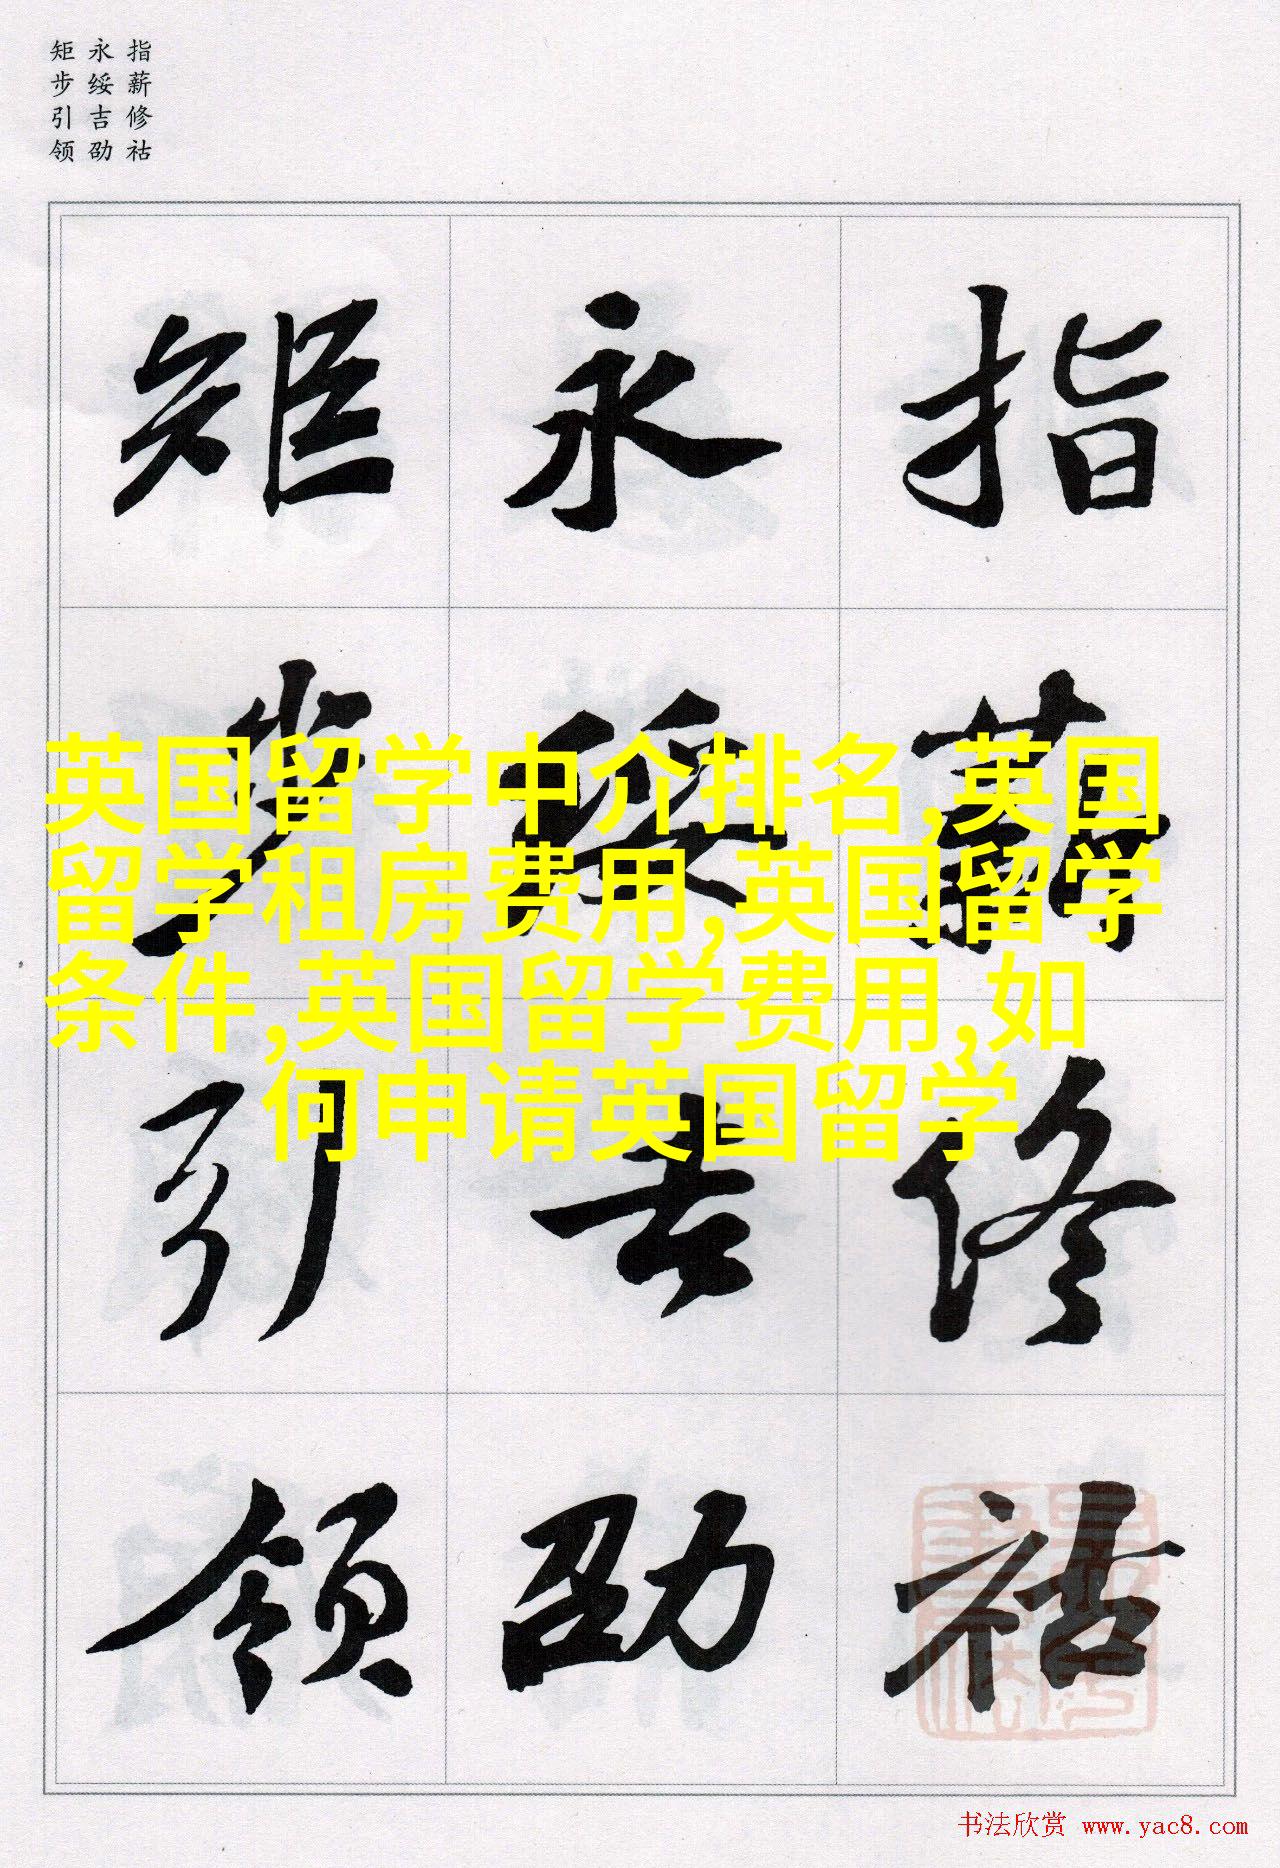 指薪修祜
永绥吉劭
矩步引领
指薪修祜
永绥吉劭
矩步引领
英国留学中介排名,英国
留学租房费用,英国留学
条件,英国留学费用,如
何申请英国留学
书法欣赏 www.yac8.com